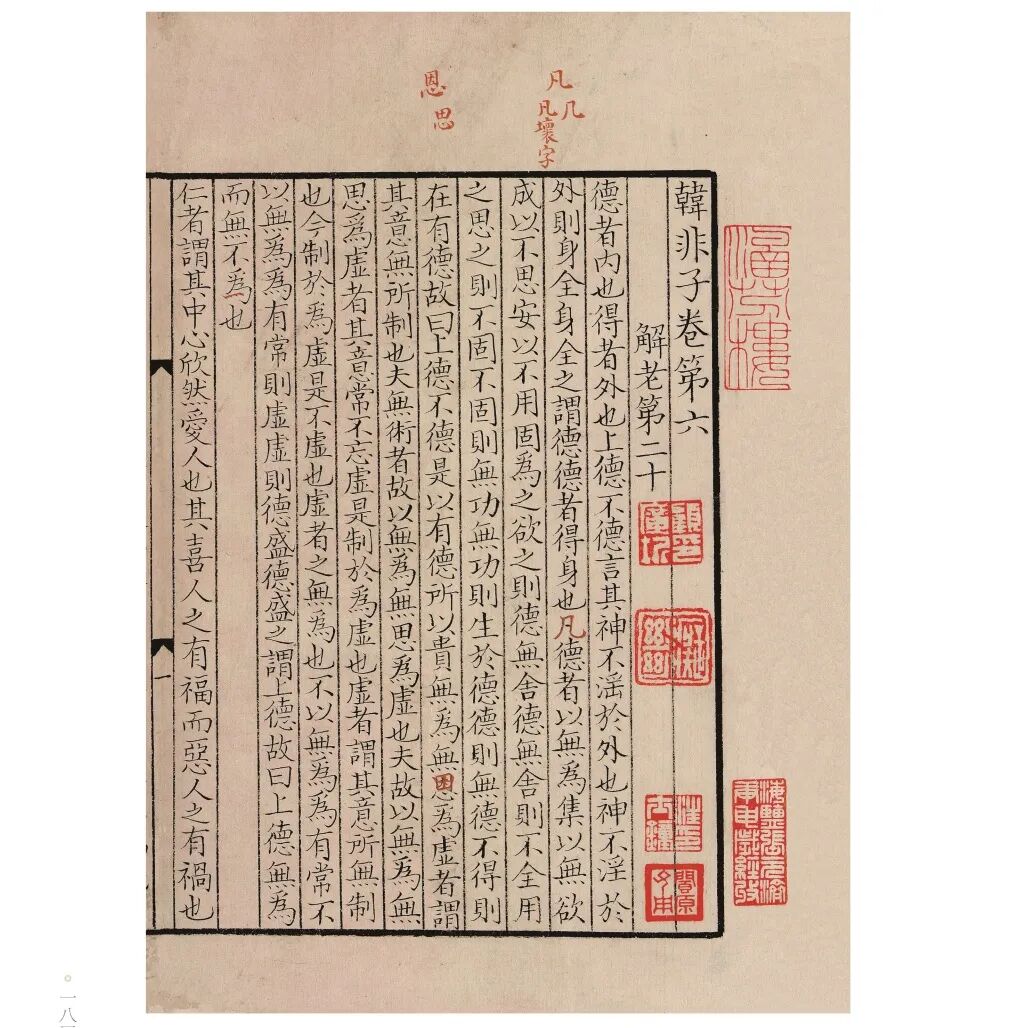 涵芬樓
海鹽張元濟庚申歲經收
凡几
凡壞字
恩
思
韓非子卷第六
解老第二十
顧廣圻印
汪士鐘印
閬原父用
德者內也得者外也上德不德言其神不滛於外也神不淫於
外則身全身全之謂德德者得身也凡德者以無爲集以無欲
成以不思安以不用固爲之欲之則德無舍德無舍則不全用
之思之則不固不固則無功無功則生於德德則無德不得則
在有德故曰上德不德是以有德所以貴無爲無恩爲虛者謂
其意無所制也夫無術者故以無爲無思爲虛也夫故以無爲無
思爲虛者其意常不忘虛是制於爲虛也虛者謂其意所無制
也今制於爲虛是不虛也虛者之無爲也不以無爲爲有常不
以無爲爲有常則虛虛則德盛德盛之謂上德故曰上德無爲
而無不爲也
仁者謂其中心欣然愛人也其喜人之有福而惡人之有禍也
一
一八